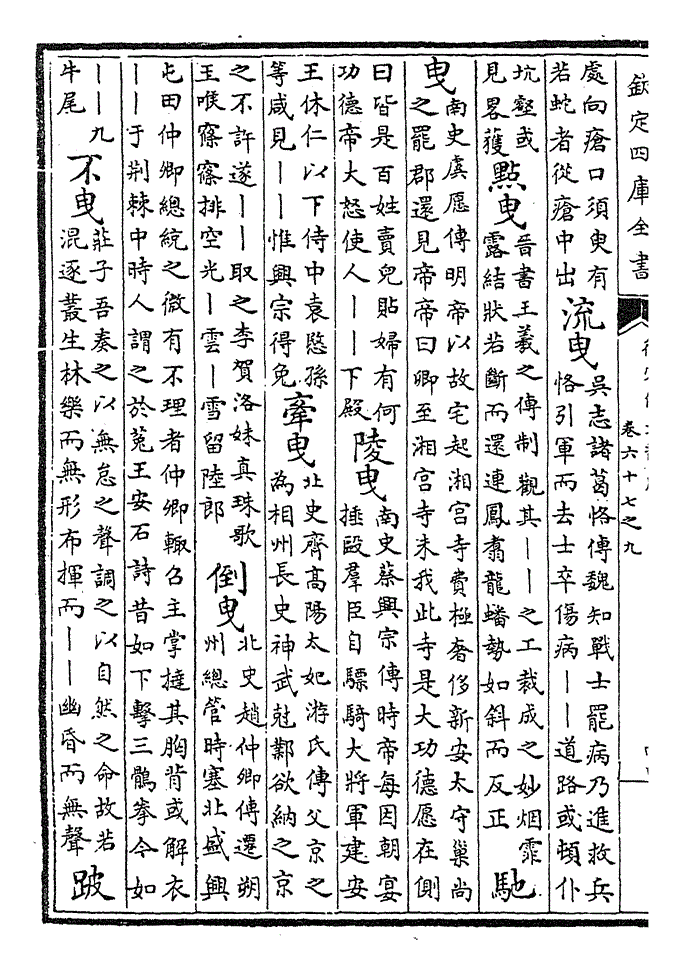 欽定四庫全書
卷六十七之九
處向瘡口須臾有
若蛇者從瘡中出
流曳
吳志諸葛恪傳魏知戰士罷病乃進救兵
恪引軍而去士卒傷病——道路或頓仆
坑壑或
見畧獲
點曳
晉書王羲之傳制觀其——之工裁成之妙烟霏
露結狀若斷而還連鳳翥龍蟠勢如斜而反正
馳
曳
南史虞愿傳明帝以故宅起湘宮寺費極奢侈新安太守巢尚
之罷郡還見帝帝曰卿至湘宮寺未我此寺是大功德愿在側
曰皆是百姓賣兒貼婦有何
功德帝大怒使人——下殿
陵曳
南史蔡興宗傳時帝每因朝宴
捶毆羣臣自驃騎大將軍建安
王休仁以下侍中袁愍孫
等咸見——惟興宗得免
牽曳
北史齊高陽太妃游氏傳父京之
為相州長史神武尅鄴欲納之京
之不許遂——取之李賀洛姝真珠歌
玉喉窱窱排空光—雲—雪留陸郎
倒曳
北史趙仲卿傳遷朔
州總管時塞北盛興
屯田仲卿總統之微有不理者仲卿輙召主掌撻其胸背或解衣
——于荆棘中時人謂之於菟王安石詩昔如下擊三鶻拳今如
——九
牛尾
不曳
莊子吾奏之以無怠之聲調之以自然之命故若
混逐叢生林樂而無形布揮而——幽昏而無聲
跛